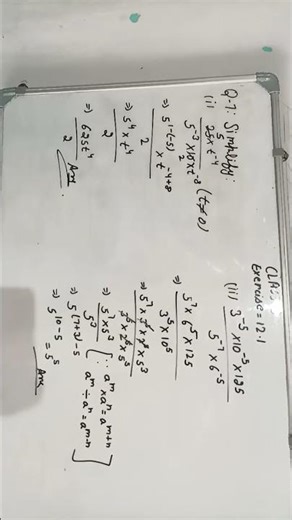 CLAS
Exercise = 12.1
Q-7: Simplify:
(i) 25 × t⁻⁴ / 5⁻³ × 10 × t⁻⁸ (t ≠ 0)
5
2
⇒ 5^(1-(-5)) × t^(-4+8) / 2
⇒ 5⁴ × t⁴ / 2
⇒ 625t⁴ / 2
Ans
(ii) 3⁻⁵ × 10⁻⁵ × 125 / 5⁻⁷ × 6⁻⁵
⇒ 5⁷ × 6⁵ × 125 / 3⁵ × 10⁵
⇒ 5⁷ × 3⁵ × 2⁵ × 5³ / 3⁵ × 2⁵ × 5⁵
⇒ 5⁷ × 5³ / 5⁵ [∵ aᵐ × aⁿ = aᵐ⁺ⁿ
aᵐ ÷ aⁿ = aᵐ⁻ⁿ]
⇒ 5^(7+3)-5
⇒ 5^(10-5) = 5⁵
Ans